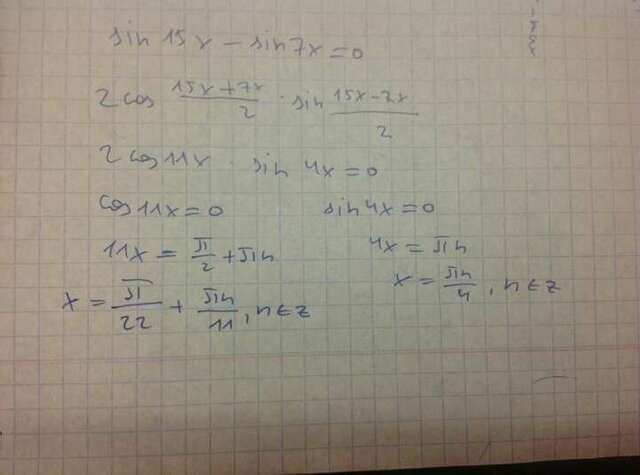 sin 15x - sin 7x = 0
2 cos (15x + 7x)/2 · sin (15x - 7x)/2
2 cos 11x · sin 4x = 0
cos 11x = 0 sin 4x = 0
11x = π/2 + πn 4x = πn
x = π/22 + πn/11, n ∈ z x = πn/4, n ∈ z